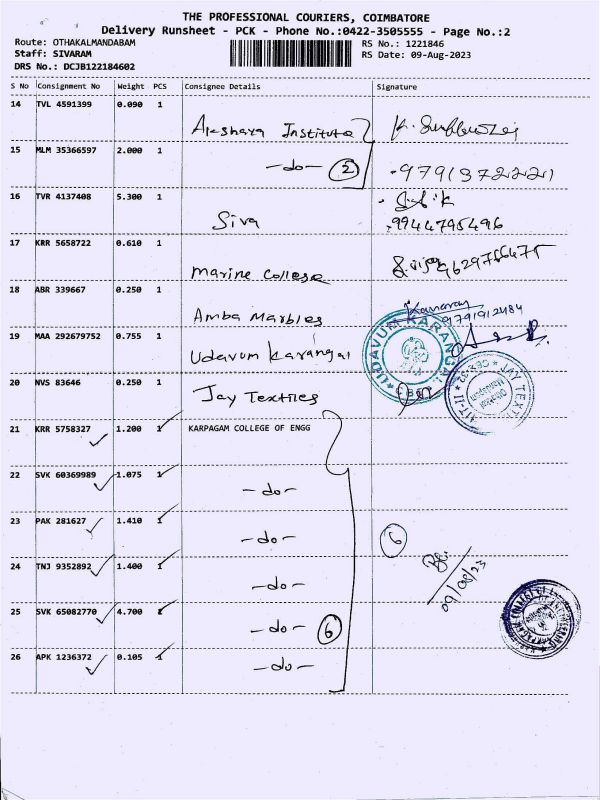 THE PROFESSIONAL COURIERS, COIMBATORE
Delivery Runsheet - PCK - Phone No.:0422-3505555 - Page No.:2
Route: OTHAKALMANDABAM
RS No.: 1221846
Staff: SIVARAM
RS Date: 09-Aug-2023
DRS No.: DCJB122184602
S No Consignment No Weight PCS Consignee Details Signature
14 TVL 4591399 0.090 1
Akshara Institute
15 MLM 35366597 2.000 1
-do- 2 9791372221
16 TVR 4137408 5.300 1
Siva 9944795496
17 KRR 5658722 0.610 1
Marine College
18 ABR 339667 0.250 1
Amba Marbles 9791912484
19 MAA 292679752 0.755 1
Udavum Karangal
UDAVUM KARANGAL
20 NVS 83646 0.250 1
Jay Textiles
JAY TEXT
21 KRR 5758327 1.200 1 KARPAGAM COLLEGE OF ENGG
22 SVK 60369989 1.075 1
-do-
23 PAK 281627 1.410 1
-do- 6
24 TNJ 9352892 1.400 1
-do- 09/08/23
25 SVK 65082770 4.700
-do- 6
26 APK 1236372 0.105 1
-do-